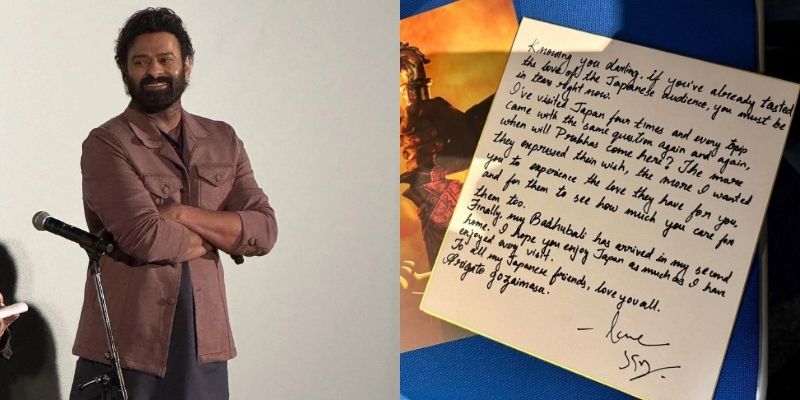 Knowing you darling, if you've already tasted
the love of the Japanese audience, you must be
in tears right now.
I've visited Japan four times and every trip
came with the same question again and again,
when will Prabhas come here? The more
they expressed their wish, the more I wanted
you to experience the love they have for you,
and for them to see how much you care for
them too.
Finally, my Baahubali has arrived in my second
home. I hope you enjoy Japan as much as I have
enjoyed every visit.
To all my Japanese friends, love you all.
Arigato gozaimasu.
- love